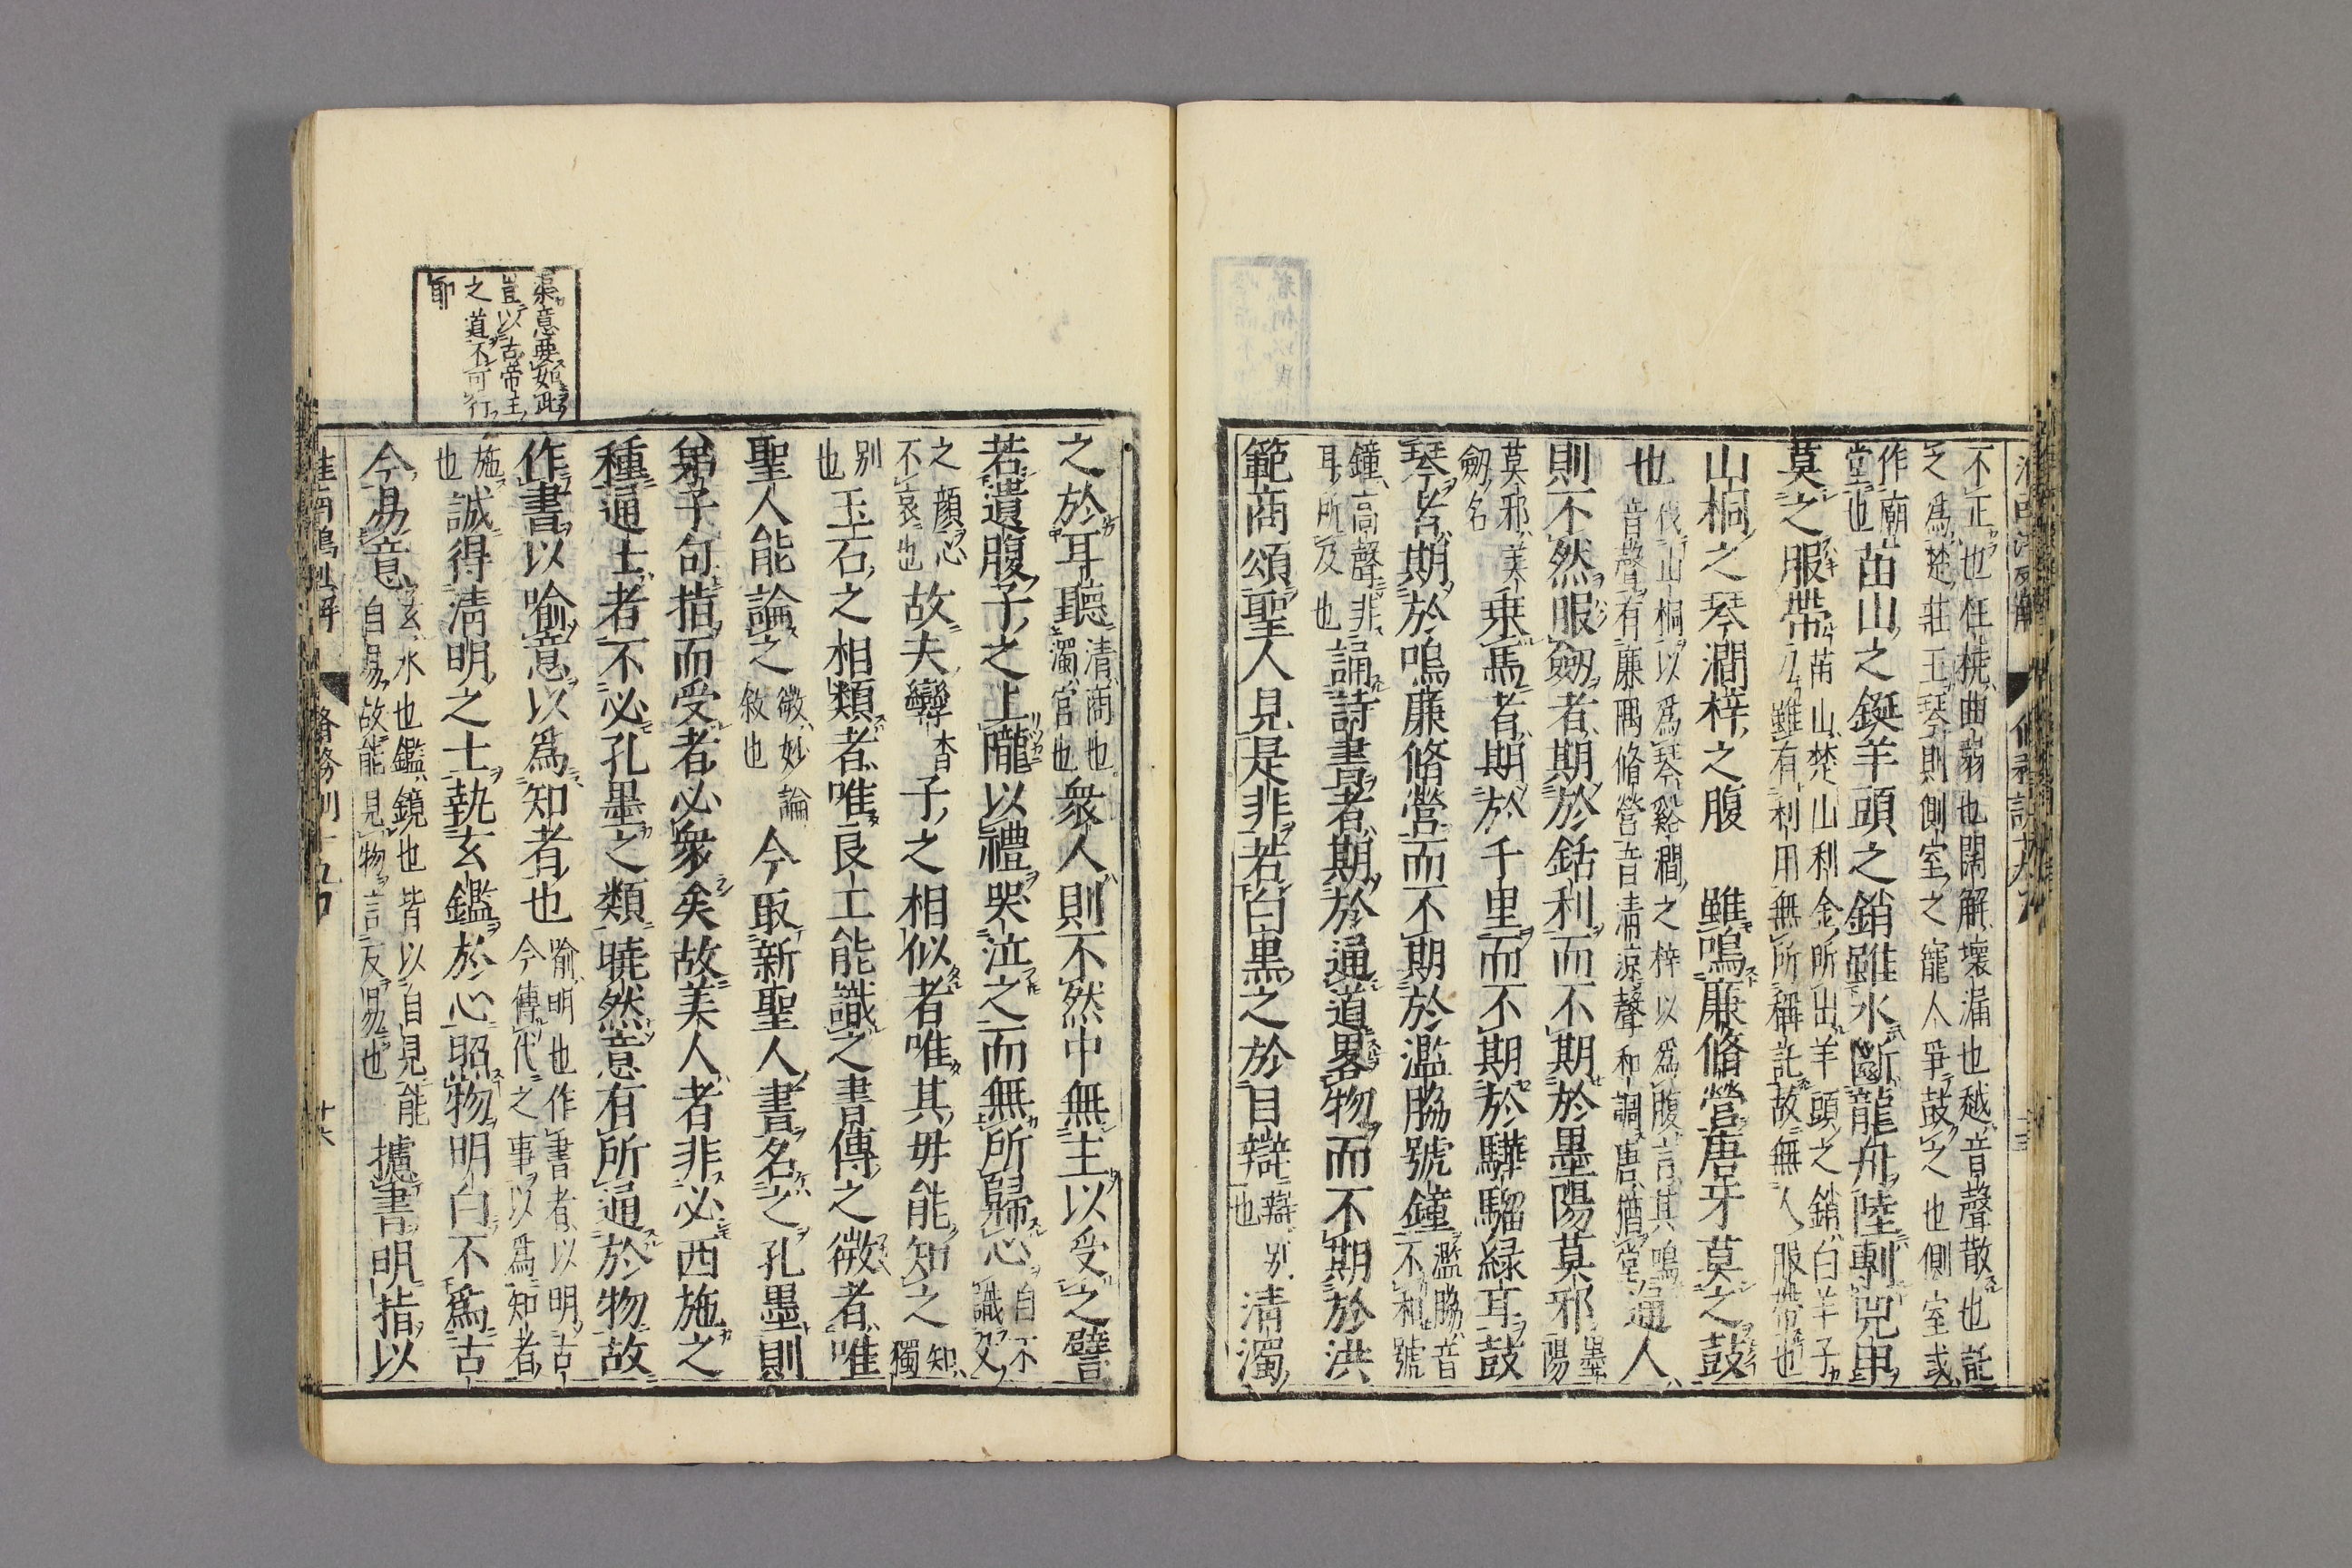 不正也枉橈曲弱也闊解壞漏也越音聲散也託
之爲楚莊王琴則側室之寵人爭鼓之也側室或
作廟堂也苗山之鋋羊頭之銷雖水斷龍舟陸剸兕甲
莫之服帶苗山楚山利金所出羊頭之銷白羊子刀雖有利用無所稱託故無人服帶也
山桐之琴澗梓之腹 雖鳴廉脩營唐牙莫之鼓
也伐山桐以爲琴谿澗之梓以爲腹言其鳴音聲有廉隅脩營音清涼聲和調唐猶堂通人
則不然服劒者期於銛利而不期於墨陽莫邪墨陽
莫邪美劒名乗馬者期於千里而不期於驊騮緑耳鼓
琴者期於鳴廉脩營而不期於濫脇號鐘濫脇音不和號
鐘高聲非耳所及也誦詩書者期於通道畧物而不期於洪
範商頌聖人見是非若白黒之於目辯辯別也清濁
之於耳聽清商也濁宮也衆人則不然中無主以受之譬
若遺腹子之上隴以禮哭泣之而無所歸心自不識父
之顔心不哀也故夫孿杳子之相似者唯其毋能知之知獨
別也玉石之相類者唯良工能識之書傳之微者唯
聖人能論之微妙論敘也今取新聖人書名之孔墨則
弟子句指而受者必衆矣故美人者非必西施之
種通士者不必孔墨之類曉然意有所通於物故
作書以喻意以爲知者也喻明也作書者以明古今傳代之事以爲知者
施也誠得淸明之士執玄鑑於心照物明白不爲古
今易意玄水也鑑鏡也皆以自見能自易故能見物言反易也攄書明指以
渠意要如此
豈以古帝王
之道不可行
耶